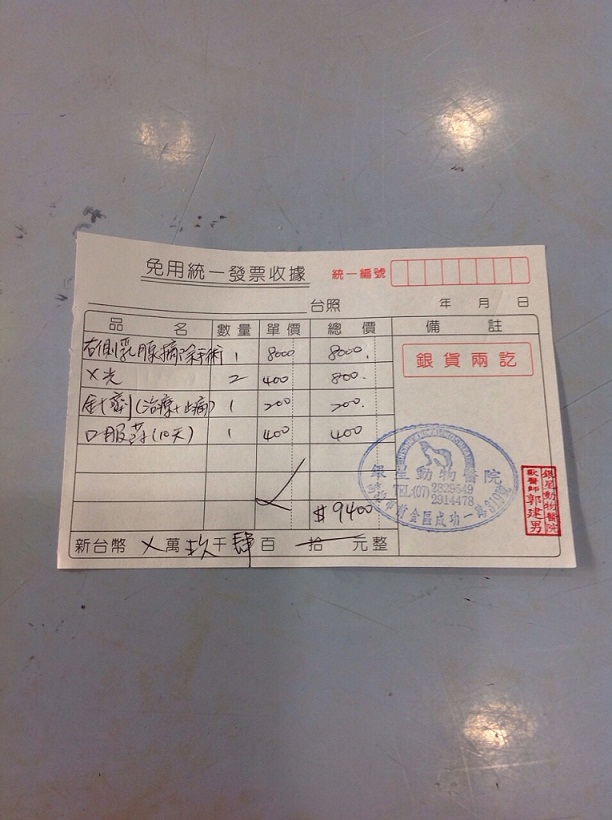 免用統一發票收據
統一編號
台照 年 月 日
品 名 數量 單價 總價 備 註
右側乳腺病除手術 1 8000 8000.
X光 2 400 800.
針劑(治療+止痛) 1 200 200.
口服葯(10天) 1 400 400
銀貨兩訖
銀星動物醫院
TEL:(07)
2914478
市前金區成功一路319號
銀星動物醫院
獸醫師郭建男
$9400
新台幣 X萬玖千肆百 拾 元整